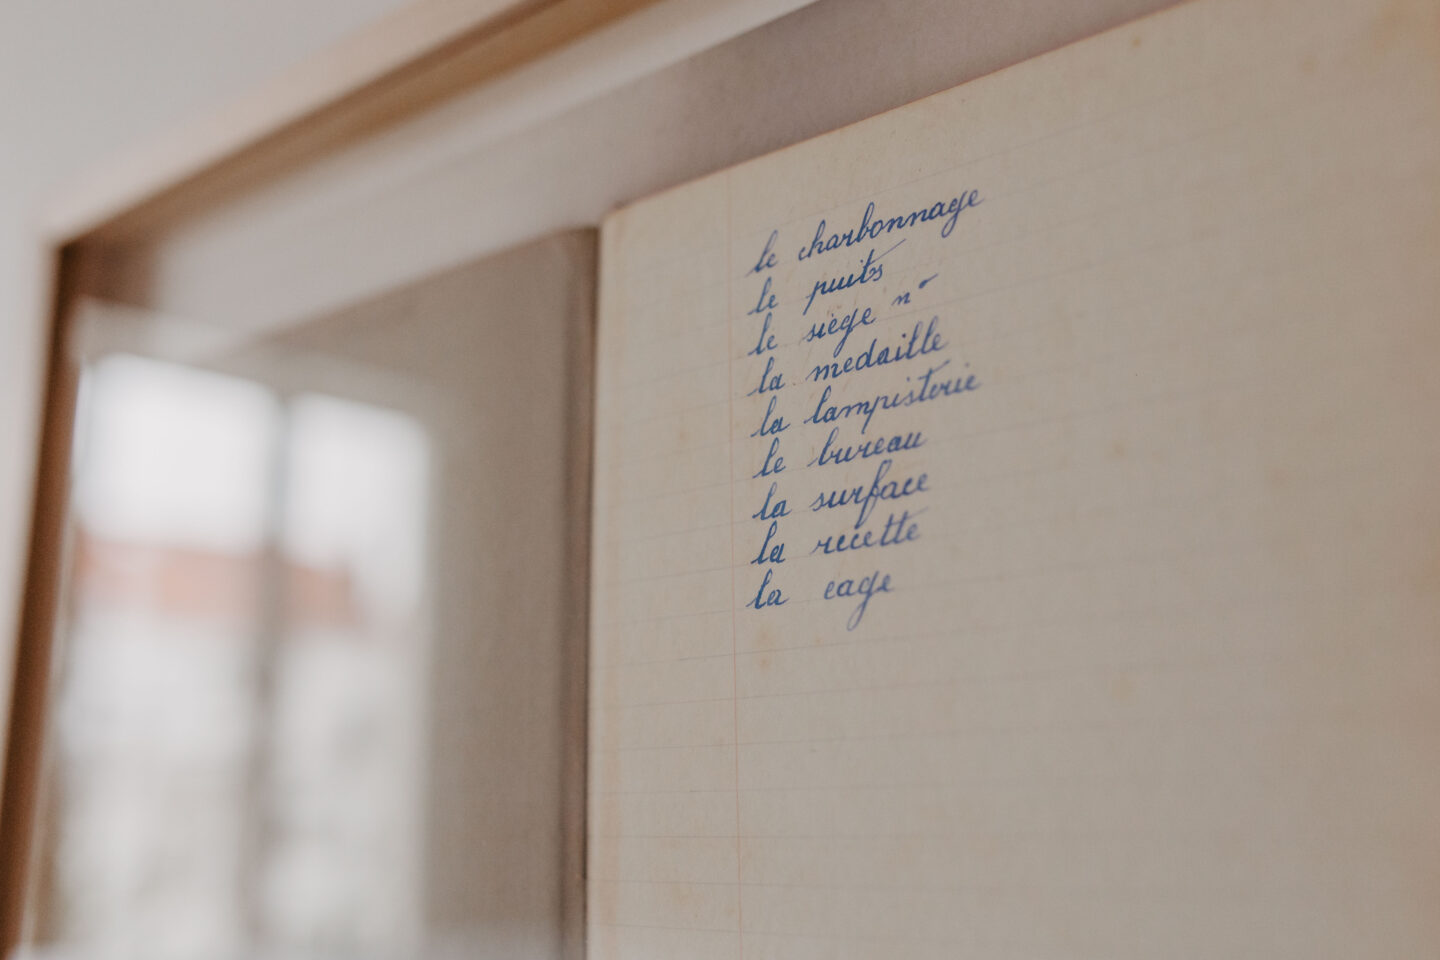 le charbonnage
le puits
le siège n°
la medaille
la lampisterie
le bureau
la surface
la recette
la cage